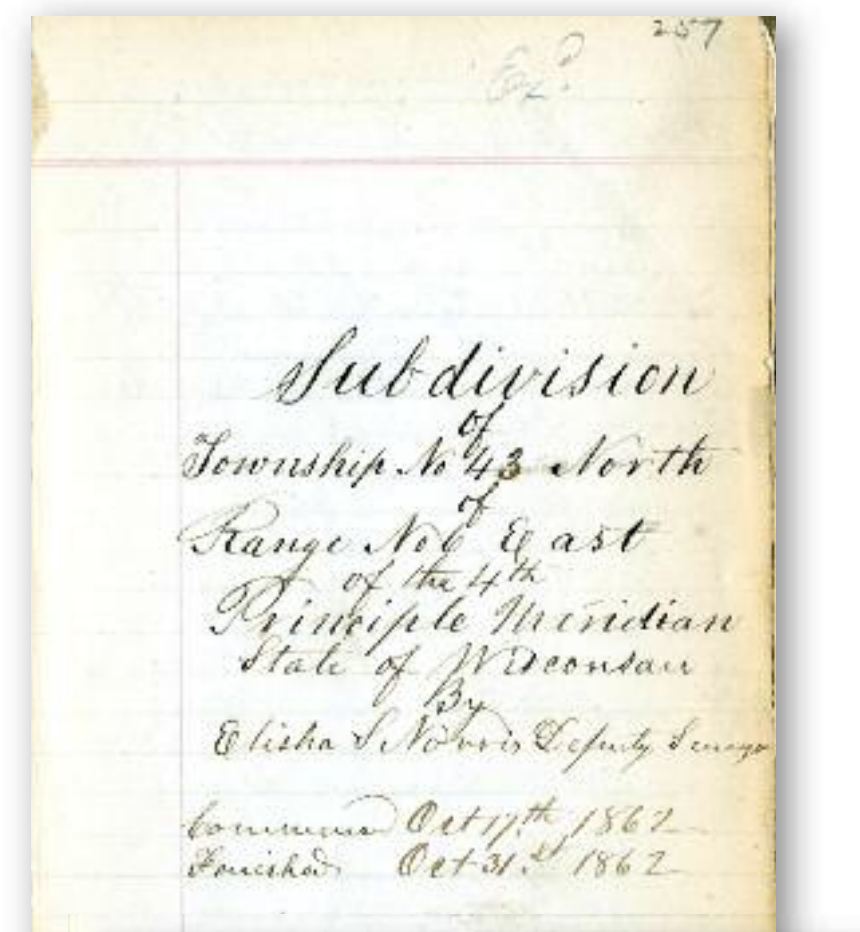 257
Exd
Subdivision
of
Township No 43 North
of
Range No 6 East
of the 4th
Principle Meridian
State of Wisconsan
By
Elisha S Norris Deputy Surveyor
Commenced Oct 17th 1862
Finished Oct 31st 1862